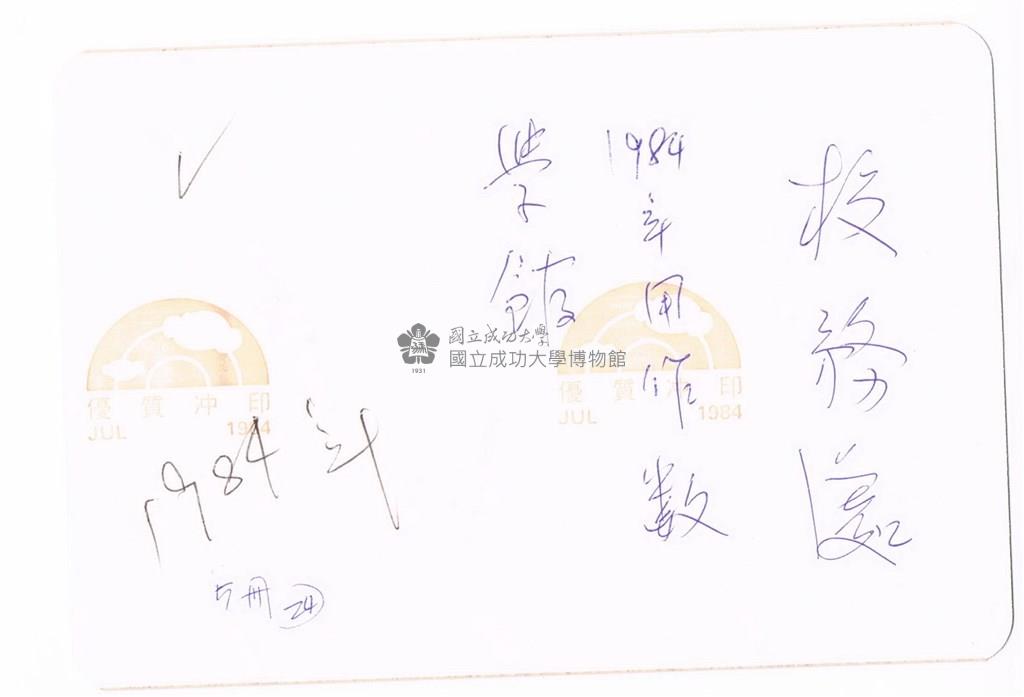 校務處
1984年用作數
學館
1984年
冊 24
優質冲印
JUL 1984
優質冲印
JUL 1984
國立成功大學
國立成功大學博物館
1931